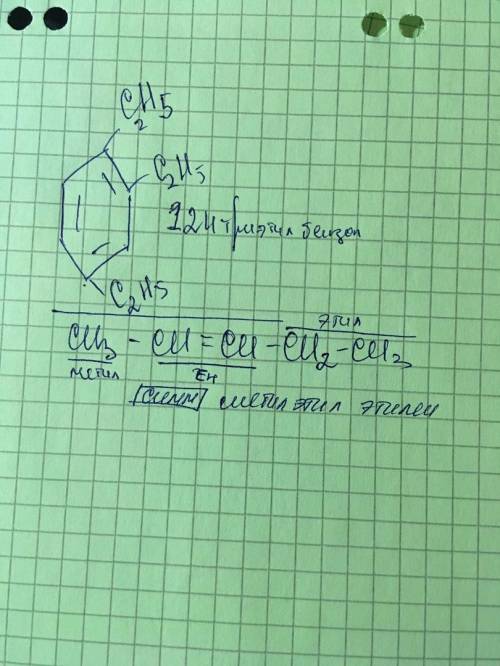 C₂H5
C₂H5
124 триэтил бензол
C₂H5
этил
CH₃ - CH = CH - CH₂ - CH₃
метил ен
симм метил этил этилен